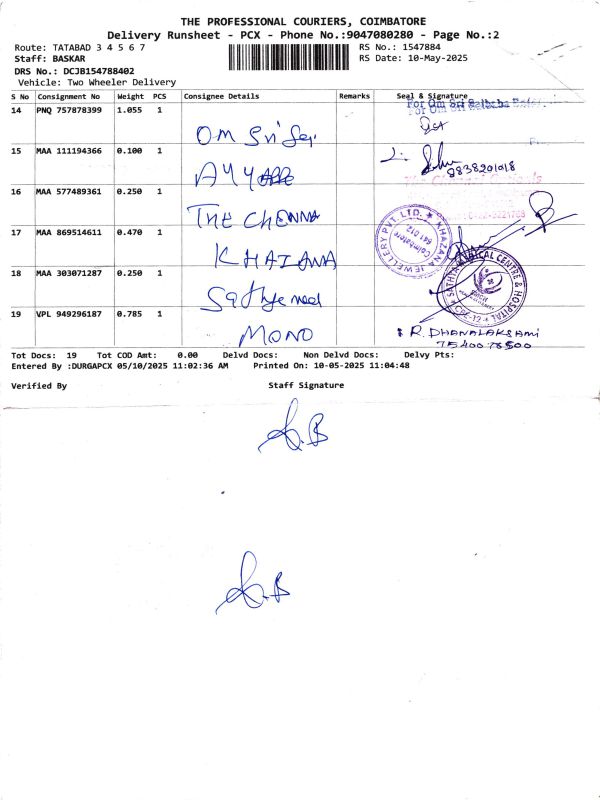 THE PROFESSIONAL COURIERS, COIMBATORE
Delivery Runsheet - PCX - Phone No.:9047080280 - Page No.:2
Route: TATABAD 3 4 5 6 7 RS No.: 1547884
Staff: BASKAR RS Date: 10-May-2025
DRS No.: DCJB154788402
Vehicle: Two Wheeler Delivery
S No Consignment No Weight PCS Consignee Details Remarks Seal & Signature
14 PNQ 757878399 1.055 1 OM Sri For Om Sri
15 MAA 111194366 0.100 1 9838201018
16 MAA 577489361 0.250 1 THE CHENNA
17 MAA 869514611 0.470 1 KHAZANA KHAZANA JEWELLERY PVT. LTD. Coimbatore 641 012
18 MAA 303071287 0.250 1 MEDICAL CENTRE & HOSPITAL CBE-12
19 VPL 949296187 0.785 1 MONO R. DHANALAKSAMI
7540078500
Tot Docs: 19 Tot COD Amt: 0.00 Delvd Docs: Non Delvd Docs: Delvy Pts:
Entered By :DURGAPCX 05/10/2025 11:02:36 AM Printed On: 10-05-2025 11:04:48
Verified By Staff Signature